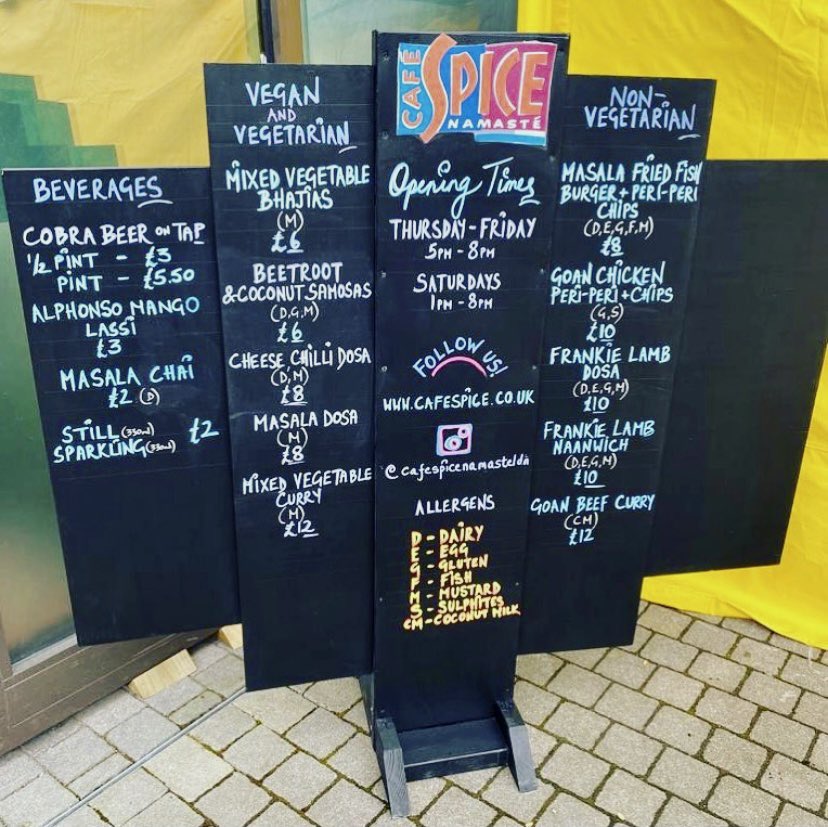 BEVERAGES
COBRA BEER ON TAP
1/2 PINT - £3
PINT - £5.50
ALPHONSO MANGO
LASSI
£3
MASALA CHAI
£2 (D)
STILL (330ml) £2
SPARKLING (330ml)
VEGAN
AND
VEGETARIAN
MIXED VEGETABLE
BHAJIAS
(M)
£6
BEETROOT
& COCONUT SAMOSAS
(D,G,M)
£6
CHEESE CHILLI DOSA
(D,M)
£8
MASALA DOSA
(M)
£8
MIXED VEGETABLE
CURRY
(M)
£12
CAFÉ
SPICE
NAMASTÉ
Opening Times
THURSDAY - FRIDAY
5PM - 8PM
SATURDAYS
1PM - 8PM
FOLLOW US!
WWW.CAFESPICE.CO.UK
@cafespicenamasteldn
ALLERGENS
D - DAIRY
E - EGG
G - GLUTEN
F - FISH
M - MUSTARD
S - SULPHITES
CM - COCONUT MILK
NON-
VEGETARIAN
MASALA FRIED FISH
BURGER + PERI-PERI
CHIPS
(D,E,G,F,M)
£8
GOAN CHICKEN
PERI-PERI + CHIPS
(G,S)
£10
FRANKIE LAMB
DOSA
(D,E,G,M)
£10
FRANKIE LAMB
NAANWICH
(D,E,G,M)
£10
GOAN BEEF CURRY
(CM)
£12